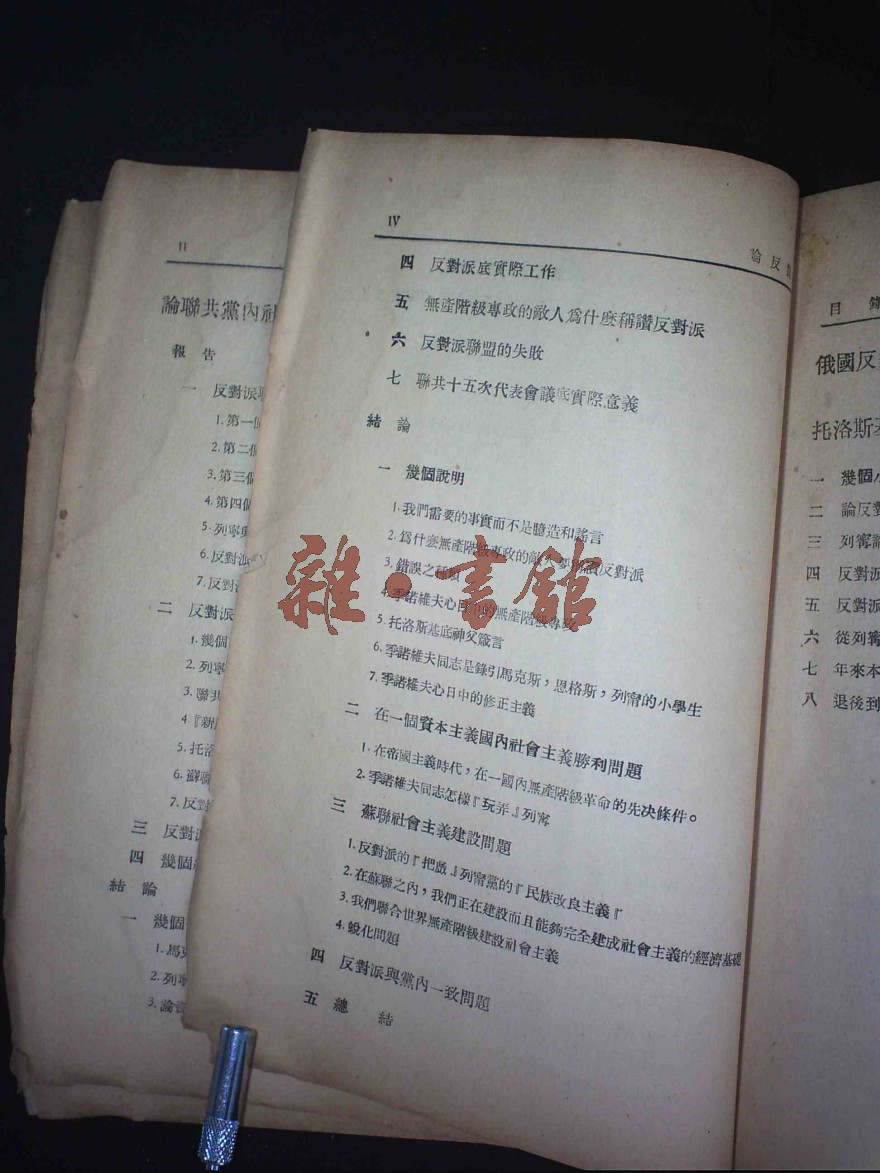 II
論聯共黨內
報告
一 反對派
1.第一
2.第二
3.第三
4.第四
5.列寧
6.反對
7.反對
二 反對派
1.幾個
2.列寧
3.聯共
4.『新
5.托洛
6.蘇聯
7.反對
三 反對
四 幾個
結論
一 幾個
1.馬克
2.列寧
3.論
IV
論反
四 反對派底實際工作
五 無產階級專政的敵人爲什麽稱讚反對派
六 反對派聯盟的失敗
七 聯共十五次代表會議底實際意義
結論
一 幾個說明
1.我們需要的事實而不是臆造和謠言
2.爲什麽無產階級專政的敵人 反對派
3.錯誤之種類
4.季諾維夫心目中的無產階級專政
5.托洛斯基底神父箴言
6.季諾維夫同志是錄引馬克斯，恩格斯，列甯的小學生
7.季諾維夫心日中的修正主義
二 在一個資本主義國內社會主義勝利問題
1.在帝國主義時代，在一國內無產階級革命的先决條件。
2.季諾維夫同志怎樣『玩弄』列甯
三 蘇聯社會主義建設問題
1.反對派的『把戲』列甯黨的『民族改良主義』
2.在蘇聯之內，我們正在建設而且能夠完全建成社會主義的經濟基礎
3.我們聯合世界無產階級建設社會主義
4.蛻化問題
四 反對派與黨內一致問題
五 總結
目錄
俄國反
托洛斯
一 幾個
二 論反對
三 列甯論
四 反對派
五 反對派
六 從列甯
七 年來本
八 退後到
雜·書館